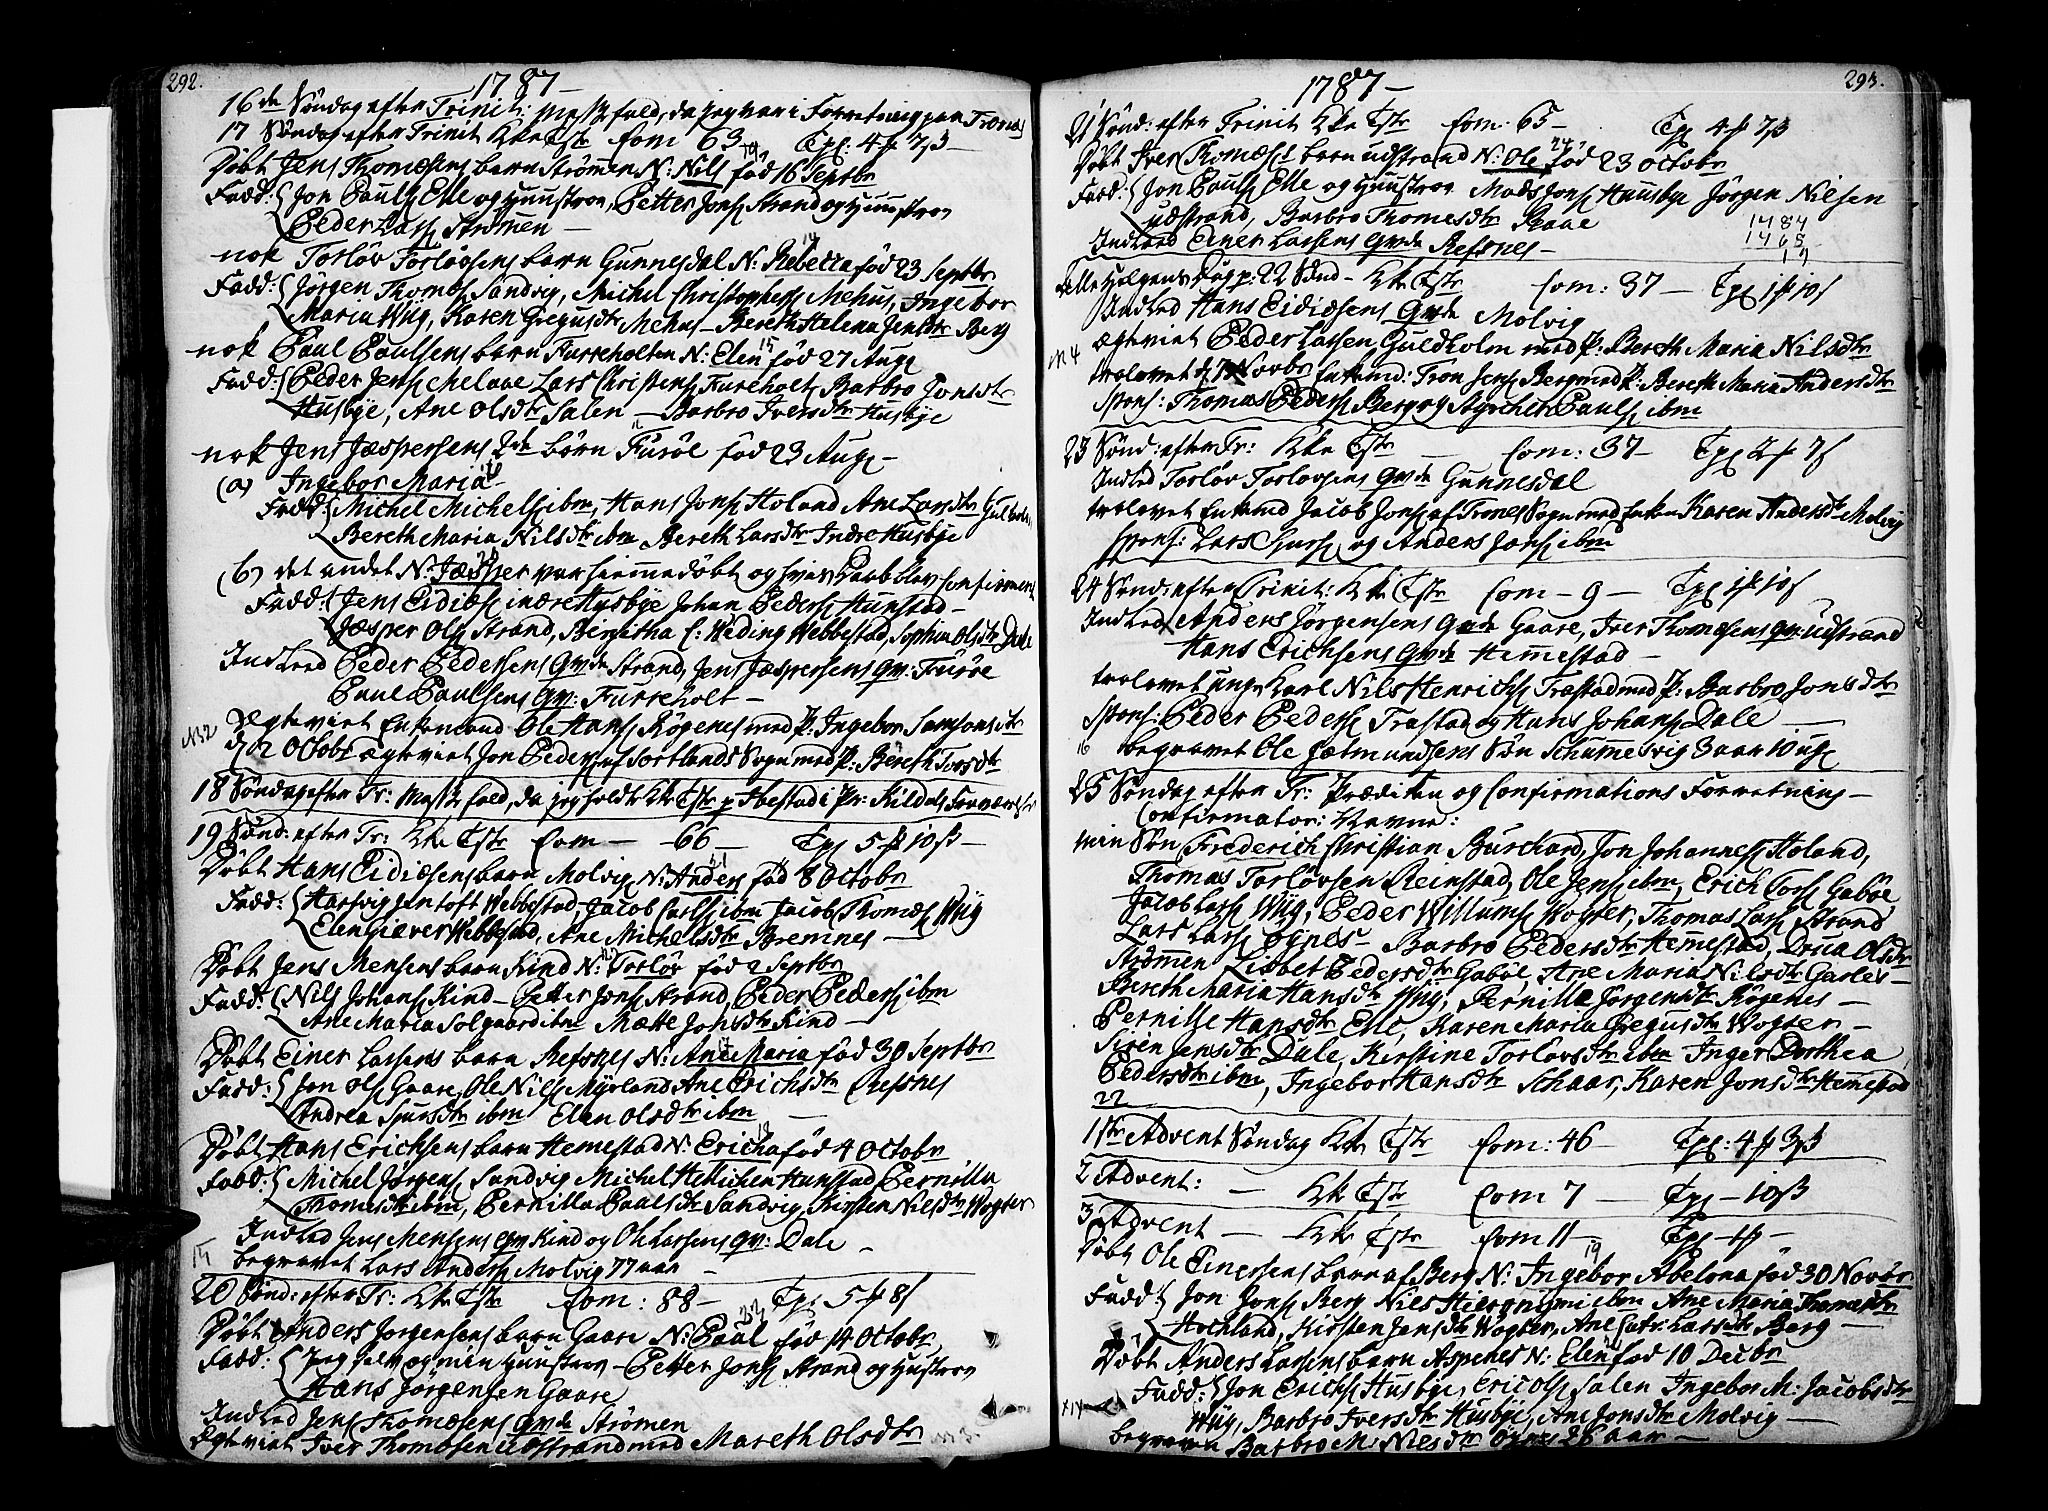 292.
1787 –
16de Søndag efter Trinit: Messe fald, da jeg var i Forretning paa Trones
17 Søndag efter Trinit Kke Tstr Com 63 Tpf: 4 # 7 ß –
Døbt Jens Thomæsens barn Strømen N: Nils fød 16 Septbr
Fadd: Jon Pauls Elle og Hustroe, Petter Jons Strand og Hustroe
Peder Lars Strømen –
nok Torløv Torløvsens barn Gunnesdal N: Rebecca fød 23 Septbr
Fadd: Jørgen Thomæs Sandvig, Michel Christophers Mehus, Ingebor
Maria Wüg, Karen Gregusdtr Mehus – Bereth Helena Jensdtr Berg
nok Paul Paulsens barn Furreholten N: Elen fød 27 Aug
Fadd: Peder Jens Melaae Lars Christens Fureholt, Barbro Jonsdtr
Husbye, Ane Olsdtr Salen – Barbro Iversdtr Husbye
nok Jens Jæspersens 2de børn Furøe fød 23 Aug –
(a) Ingebor Maria
Fadd: Michel Michels ibm, Hans Jons Holand Ane Larsdtr Gulholm
Bereth Maria Nilsdtr ibm Bereth Larsdtr Indre Husbye
(b) det andet N: Jæsper var hiemmedøbt og hvis Daab blev confirmeret
Fadd: Jens Eidiæs indre Hysbye Johan Peders Hunstad –
Jæsper Ols Strand, Birgitha C: Weding Webbestad, Sophia Olsdtr Dale
Indled Peder Pedersens Qvinde Strand, Jens Jæspersens Qv: Furøe
Paul Paulsens Qv: Furreholt –
N 2 Ægteviet Enkemand Ole Hans Røgenes med P: Ingebor Samsonsdtr
d 2 Octobr ægteviet Jon Peders af Sortlands Sogn med P: Bereth Torsdtr
18 Søndag efter Tr: Messe fald, da jeg holdt Kke Tstr p Ibestad i Pr: Kildals Fraværelse
19 Sønd: efter Tr: Kke Tstr Com – 66 – Tpf 5 # 10 ß –
Døbt Hans Eidiæsens barn Molvig N: Anders fød 8 Octobr
Fadd: Hartvig Jentoft Webbestad, Jacob Carls ibm Jacob Thomæs Wüg
Elen Giæver Webbestad, Ane Michelsdtr Bremnes –
Døbt Jens Mensens barn Kind N: Torløv fød 2 Septbr
Fadd: Nils Johans Kind – Petter Jons Strand, Peder Peders ibm
Ane Maria Solgaard ibm Mætte Jonsdtr Kind –
Døbt Einer Lassens barn Refsnes N: Ane Maria fød 30 Septbr
Fadd: Jon Ols Gaare, Ole Nils Myrland Ane Erichsdtr Refsnes
Andrea Sjursdtr ibm Elen Olsdtr ibm –
Døbt Hans Erichsens barn Hemestad N: Ericha fød 4 Octobr
Fadd: Michel Jørgens Sandvig Michel Hetlichen Hunstad Pernilla
Thomesdtr ibm, Pernilla Paalsdtr Sandvig, Kirsten Nilsdtr Wogter
Indled Jens Mensens Qv: Kind og Ole Lassens Qv: Dale –
15 begravet Lars Anders Molvig 77 aar –
20 Sønd: efter Tr: Kke Tstr Com: 88 – Tpf 5 # 8 ß
Døbt Anders Jørgensens barn Gaare N: Paul fød 14 Octobr
Fadd: Jeg selv og min Hustroe – Petter Jons Strand og Hustroe
Hans Jørgensen Gaare
Indled Jens Thomæsens Qvinde Strømen
Ægteviet Iver Thomæsen Udstrand med Mareth Olsdtr N 3.
293.
1787 –
21 Sønd: efter Trinit Kke Tstr Com: 65 – Tpf 4 # 7 ß
Døbt Iver Thomæs barn udstrand N: Ole fød 23 Octobr
Fadd: Jon Pauls Elle og Hustroe Mads Jons Huusbye Jørgen Nilsen
udstrand, Barbro Thomesdtr Raae
1784
1765
19
Indled Einer Lassens Qvinde Refsnes –
Alle Helgens Dag p: 22 Sønd – Kke Tstr Com: 37 – Tpf 1 # 10 ß
Indled Hans Eidiæsens Qvinde Molvig
N 4 ægteviet Peder Lassen Guldholm med P: Bereth Maria Nilsdtr
trolovet d 7 Novbr Enkemd: Tron Jens Berg med P: Bereth Maria Andersdtr
Spons: Thomas Peders Berg og Ayschel Pauls ibm
23 Sønd: efter Tr: Kke Tstr – Com: 37 – Tpf 2 # 7 ß
Indled Torløv Torløvsens Qvinde Gunnesdal
trolovet Enkemd Jacob Jons af Trones Sogn med Enken Karen Andersdtr Molvig
Spons: Lars Sjurs og Anders Jons ibm
24 Sønd: efter Trinit: Kke Tstr Com – 9 – Tpf 1 # 10 ß
Indled Anders Jørgensens Qvinde Gaare, Iver Thomæsens Qv: udstrand
Hans Erichsens Qvinde Hemestad –
trolovet unge Karl Nils Henrichs Træstad med P: Barbro Jonsdtr
Spons: Peder Peders Trastad og Hans Johans Dale –
16 begravet Ole Jætmundsens Søn Schumelsvig 3 aar 10 ug
25 Søndag efter Tr: Prædiken og Confirmations Forretning –
Confirmator: Navne:
min Søn Frederich Christian Burchard, Jon Johannes Holand,
Thomas Torløvsen Reinstad, Ole Jens ibm, Erich Tors Gabøe
Jacob Lars Wüg, Peder Willums Wogter, Thomas Lars Strand
Lars Lars øynes – Barbro Pedersdtr Hemestad, Drua Olsdtr
Strømen Lisbet Pedersdtr Gabøe, Ane Maria Nilsdtr Gaslev –
Bereth Maria Hansdtr Wüg, Pernille Jørgensdtr Røgenes –
Pernille Hansdtr Elle, Karen Maria Gregusdtr Wogter –
Siren Jensdtr Dale, Kirstine Torløvsdtr ibm Inger Dorthea
Pedersdtr ibm, Ingebor Hansdtr Schaar, Karen Jonsdtr Hemestad
22
1ste Advent Søndag Kke Tstr Com: 46 – Tpf: 4 # 3 ß
2 Advent: – Kke Tstr Com 7 – Tpf – 10 ß
3 Advent – Kke Tstr Com 11 – Tpf – 1 # –
Døbt Ole Einersens barn af Berg N: Ingebor Abelona fød 30 Novbr
Fadd: Jon Jons Berg Nils Hieronymi ibm Ane Maria Thomesdtr
Hochland, Kirsten Jensdtr Wogter, Ane Catr: Larsdtr Berg –
Døbt Anders Lassens barn Aspenes N: Elen fød 10 Decbr
Fadd: Jon Erichs Husbye, Eric Ols Salen Ingebor M: Jacobsdtr
Wüg, Barbro Iversdtr Husbye, Ane Jonsdtr Molvig –
begraven Barbro M: Nilsdtr øynes 26 aar –